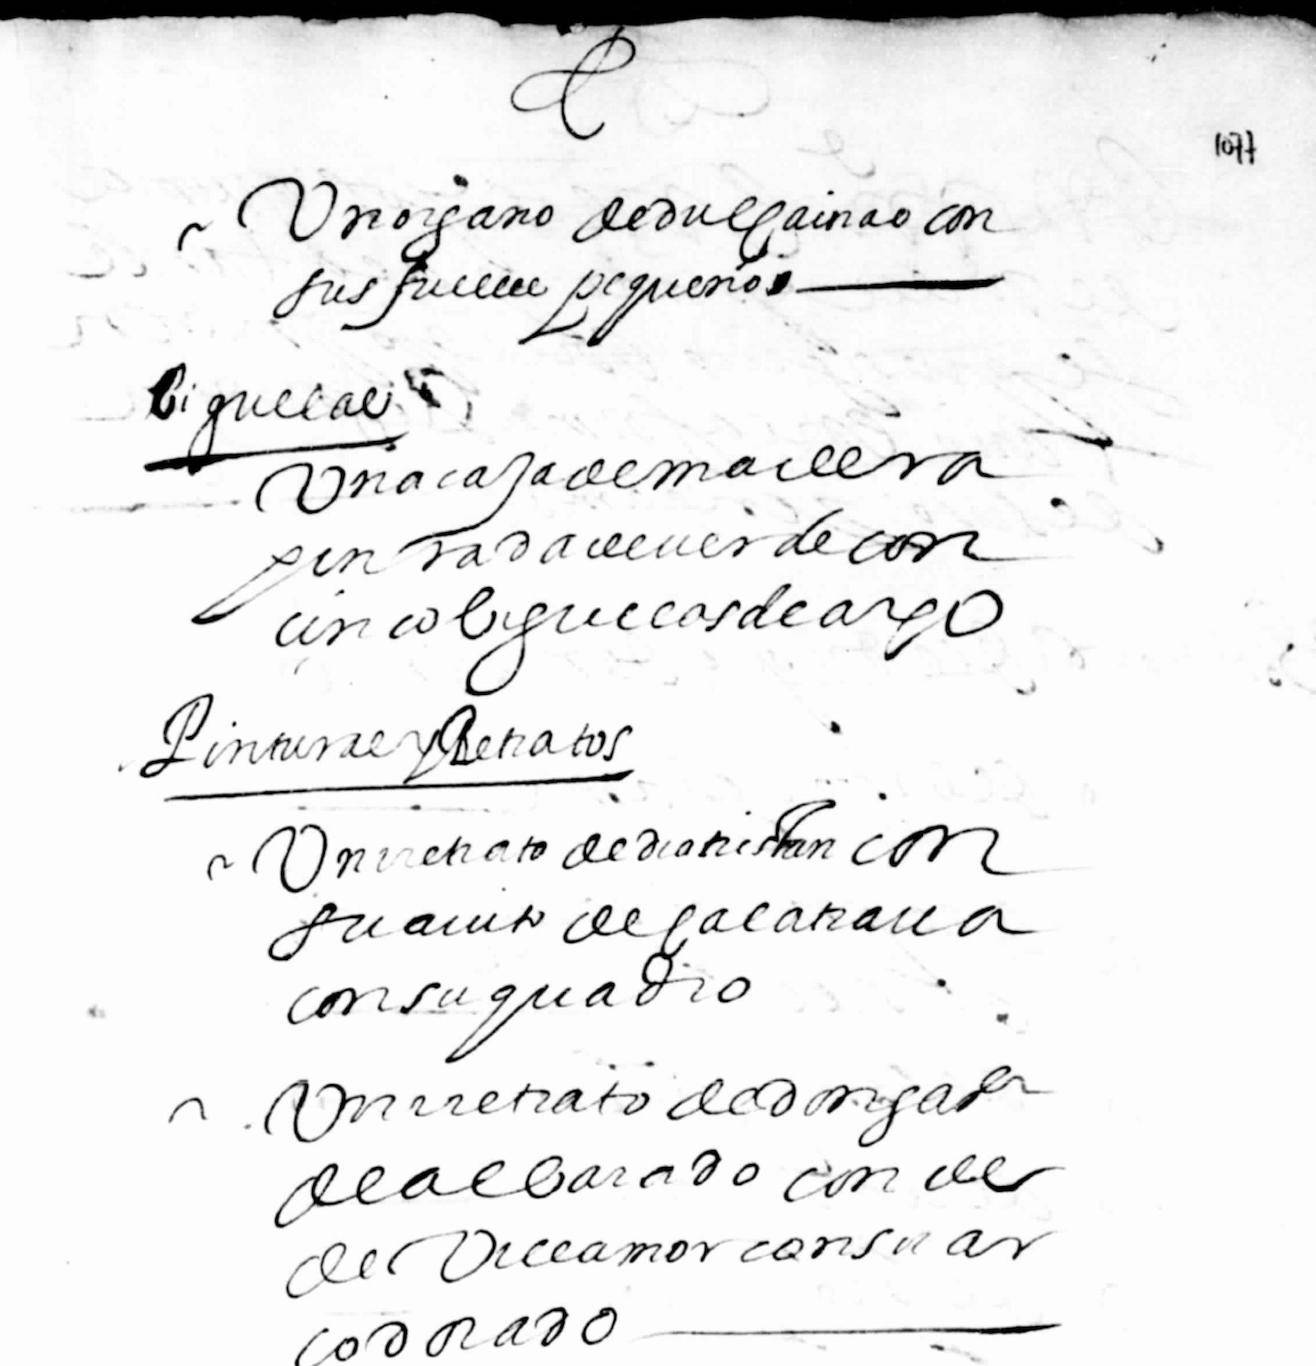 1077
Un organo de dulçainas con
sus fuelles pequeños
biguelas
Una caja de madera
pintada de verde con
cinco biguelas de arco
Pinturas y Retratos
Un rretrato de don tristan con
su auito de calatraua
con su quadro
Un rretrato de don gar
de albarado conde
de Villamor con su mar
co dorado